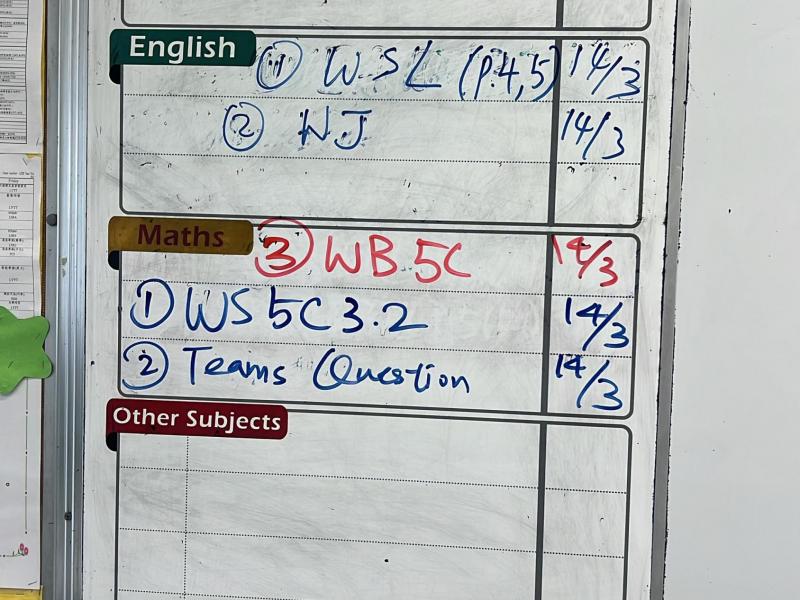 English
① WSL (P.4,5) 14/3
② NJ 14/3
Maths
③ WB 5C 14/3
① WS 5C 3.2 14/3
② Teams Question 14/3
Other Subjects